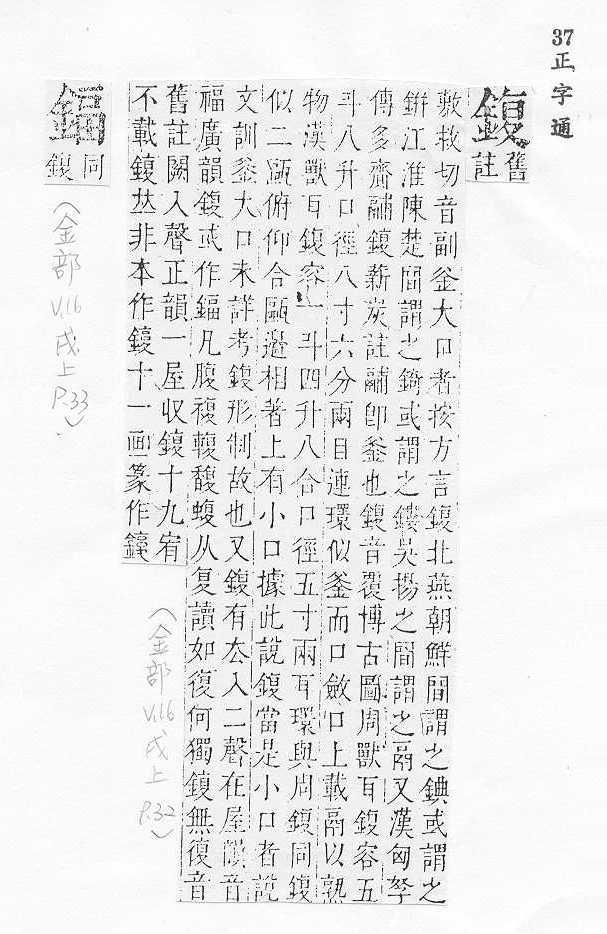 37正字通
鍑
舊註
敷救切音副釜大口者按方言鍑北燕朝鮮間謂之錪或謂之
鉼江淮陳楚間謂之錡或謂之鏤吳揚之間謂之鬲又漢匈奴
傳多齎鬴鍑薪炭註鬴卽釜也鍑音覆博古圖周獸耳鍑容五
斗八升口徑八寸六分兩目連環似釜而口斂口上載鬲以熟
物漢獸耳鍑容一斗四升八合口徑五寸兩耳環與周鍑同鍑
似二甌俯仰合甌邊相著上有小口據此說鍑當是小口者說
文訓釜大口未詳考鍑形制故也又鍑有去入二聲在屋韻音
福廣韻鍑或作鍢凡腹複輹馥蝮从复讀如復何獨鍑無復音
舊註闕入聲正韻一屋収鍑十九宥
不載鍑𠀤非本作鍑十一畫篆作鍑
鍢
同鍑
(金部 V.16 戌上 P.33)
(金部 V.16 戌上 P.32)